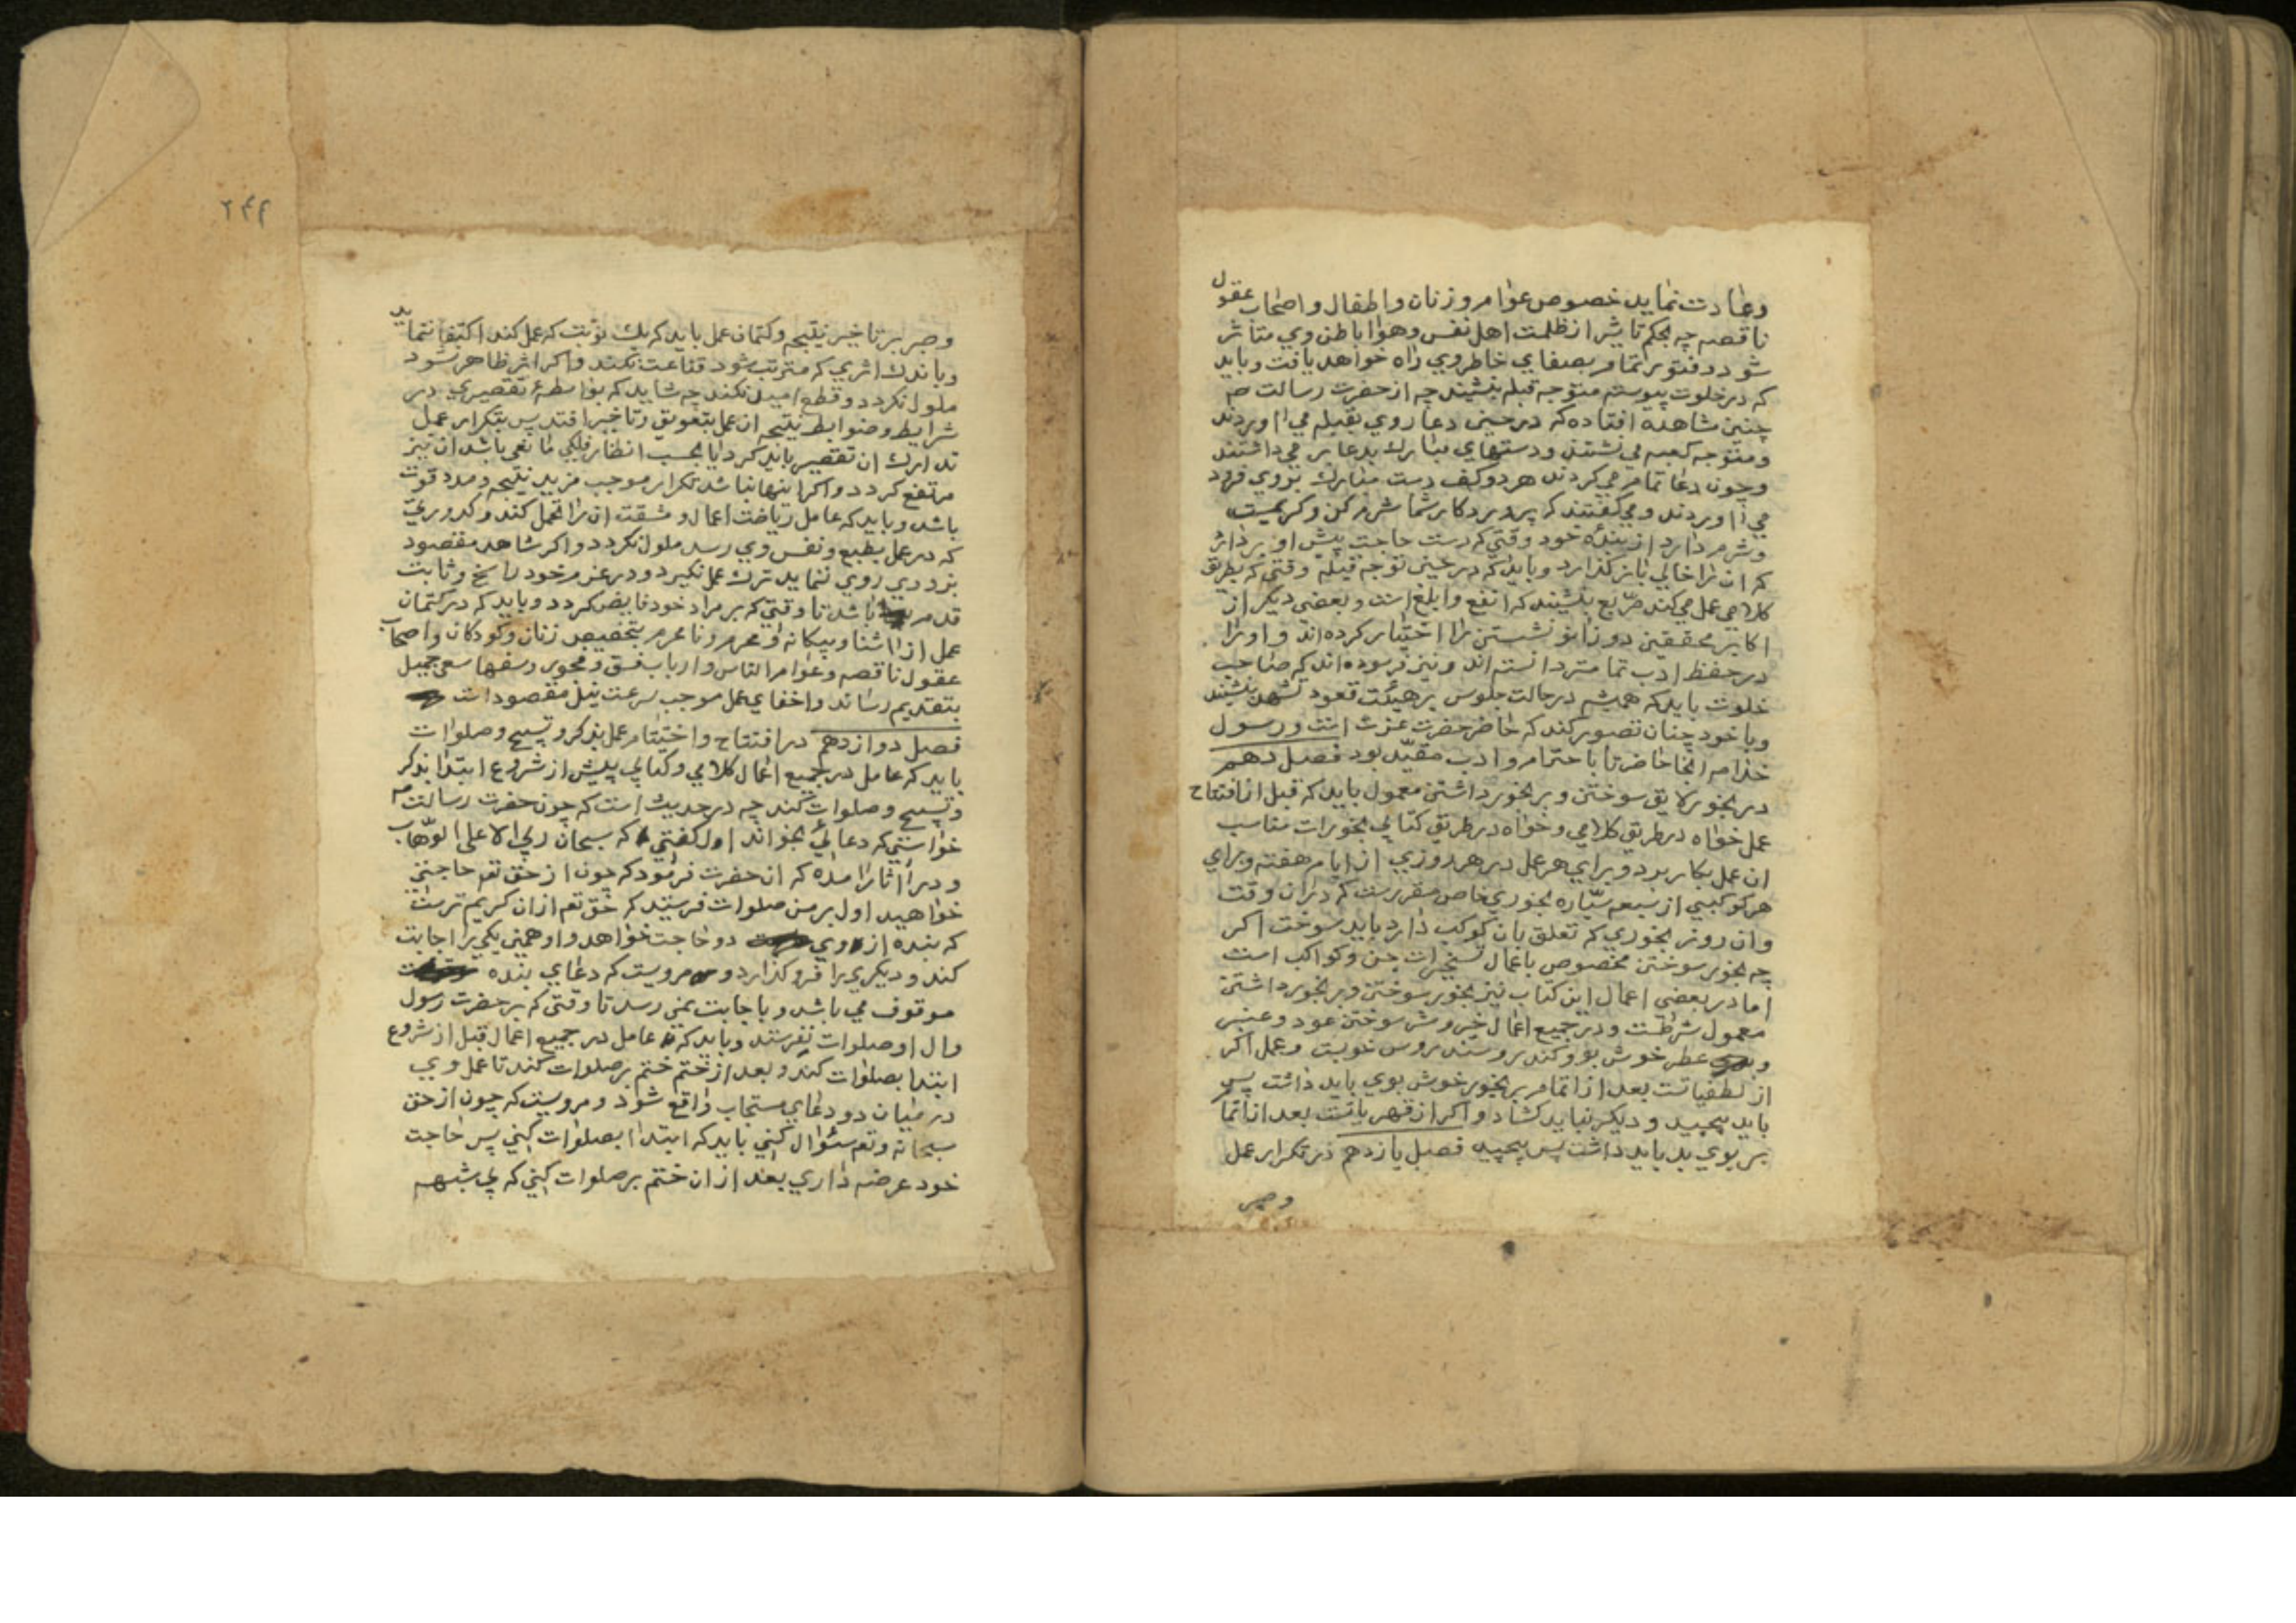 وعادت نماید خصوص عوام و زنان و اطفال و اصحاب عقول
ناقصه چه بحکم تاثیر از ظلمت اهل نفس و هوا باطن وي متاثر
شود و فتور تمام بصفاي خاطر وي راه خواهد یافت و باید
که در خلوت پیوسته متوجه قبله نشیند چه از حضرت رسالت صم
چنین مشاهده افتاده که در حین دعا روي بقبله مي اوردند
و متوجه کعبه مي نشتند و دستهاي مبارك بدعا بر مي داشتند
و چون دعا تمام مي کردند هر دو کف دست مبارك بروي فرود
مي اوردند و مي گفتند که پروردکار شما شرم کن و کریمیست
و شرم دارد از بنده خود وقتي که دست حاجت پیش او بردارد
که ان را خالي باز کذارد و باید که در حین توجه قبله وقتي که بطریق
کلامي عمل مي کند مربع بنشیند که انفع و ابلغ است و بعضي دیکر از
اکابر محققین دو زانو نشستن را اختیار کرده اند و او را
در حفظ ادب تمامتر دانسته اند و نیز فرموده اند که صاحب
خلوت باید که همیشه در حالت جلوس بر هیئت قعود تشهد بنشیند
و با خود چنان تصور کند که حاضر حضرت عزت است و رسول
خدا صم انجا حاضر تا باحترام و ادب مقیّد بود فصل دهم
در بخور لایق سوختن و بر بخور داشتن معمول باید که قبل از افتتاح
عمل خواه در طریق کلامي و خواه در طریق کتابي بخورات مناسب
ان عمل بکار برد و براي هر عمل در هر روزي از ایام هفته و براي
هر کوکبي از سبعه سیّاره بخوري خاص مقررست که در ان وقت
و ان روز بخوري که تعلق بان کوکب دارد باید سوخت اکر
چه بخور سوختن مخصوص باعمال تسخیرات جن و کواکب است
اما در بعضي اعمال این کتاب نیز بخور سوختن و بر بخور داشتن
معمول شرطست و در جمیع اعمال خیر و شر سوختن عود و عنبر
و عطر خوش بو و کندر و سندروس خوبست و عمل اکر
از لطفیاتست بعد از اتمام بر بخور خوش بوي باید داشت پس
باید پیچید و دیکر نباید کشاد و اکر از قهریاتست بعد از اتما
بر بوي بد باید داشت پس پیچید فصل یازدهم در تکرار عمل
و صبر
۲۴۹
و صبر بر تاخیر نتیجه و کتمان عمل باید که بیك نوبت که عمل کند اکتفا ننماید
و باندك اثري که مترتب شود قناعت نکند و اکر اثر ظاهر نشود
ملول نکردد و قطع امید نکند چه شاید که بواسطهٔ تقصیري در
شرایط و ضوابط نتیجه ان عمل بتعویق و تاخیر افتد پس بتکرار عمل
تدارك ان تقصیر باید کرد یا بحسب انظار فلکي مانعي باشد ان نیز
مرتفع کردد و اکر اینها نباشد تکرار موجب مزید نتیجه و مدد قوت
باشد و باید که عامل ریاضت اعمال و مشقت ان را تحمل کند و کدورتي
که در عمل بطبع و نفس وي رسد ملول نکردد و اکر شاهد مقصود
بزودي روي ننماید ترك عمل نکیرد و در عزم خود راسخ و ثابت
قدم باشد تا وقتي که بر مراد خود فایض کردد و باید که در کتمان
عمل از اشنا و بیکانه و محرم و نامحرم بتخصیص زنان و کودکان و اصحاب
عقول ناقصه و عوام الناس و ارباب فسق و فجور و سفها سعي جمیل
بتقدیم رساند و اخفاي عمل موجب سرعت نیل مقصود است
فصل دوازدهم در افتتاح و اختتام عمل بذکر و تسبیح و صلوات
باید که عامل در جمیع اعمال کلامي و کتابي پیش از شروع ابتدا بذکر
و تسبیح و صلوات کند چه در حدیث است که چون حضرت رسالت صم
خواستي که دعائي بخواند اول کفتي که سبحان ربي الاعلي الوهّاب
و در اثار امده که ان حضرت فرمود که چون از حق تعم حاجتي
خواهید اول بر من صلوات فرستید که حق تعم از ان کریم ترست
که بنده از وي دو حاجت خواهد و او همین یکي را اجابت
کند و دیکري را فرو کذارد و مرویست که دعاي بنده
موقوف مي باشد و باجابت نمي رسد تا وقتي که بر حضرت رسول
و ال او صلوات نفرستد و باید که عامل در جمیع اعمال قبل از شروع
ابتدا بصلوات کند و بعد از ختم ختم بر صلوات کند تا عمل وي
در میان دو دعاي مستجاب واقع شود و مرویست که چون از حق
سبحانه و تعم سئوال کني باید که ابتدا بصلوات کني پس حاجت
خود عرضه داري بعد از ان ختم بر صلوات کني که بي شبهه